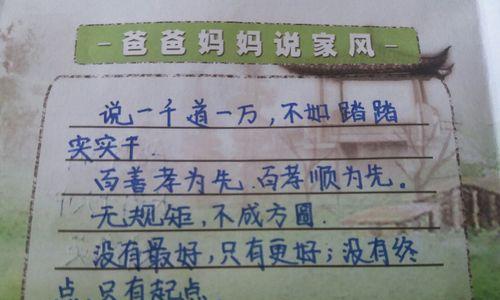 -爸爸妈妈说家风-
说一千道一万,不如踏踏
实实干.
百善孝为先.百孝顺为先。
无规矩,不成方圆.
没有最好,只有更好;没有终
点,只有起点